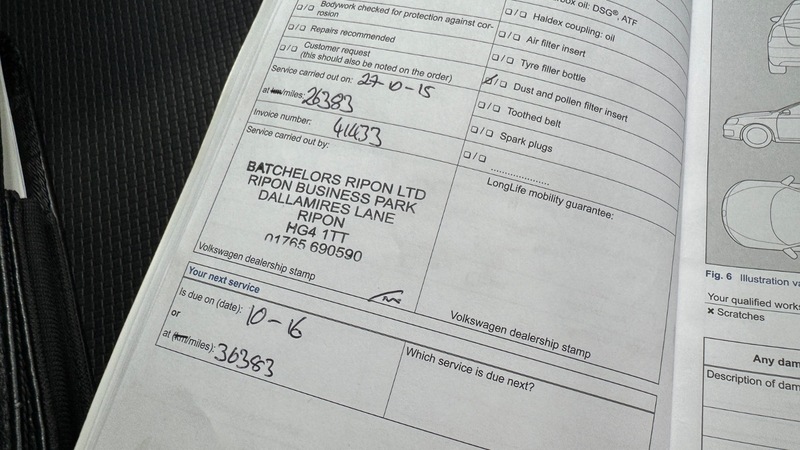 box oil: DSG®, ATF
□/□ Bodywork checked for protection against cor-
rosion
□/□ Repairs recommended
□/□ Customer request
(this should also be noted on the order)
Service carried out on: 27-10-15
at km/miles: 26383
Invoice number: 41433
Service carried out by:
BATCHELORS RIPON LTD
RIPON BUSINESS PARK
DALLAMIRES LANE
RIPON
HG4 1TT
01765 690590
Volkswagen dealership stamp
□/□ Haldex coupling: oil
□/□ Air filter insert
□/□ Tyre filler bottle
□/□ Dust and pollen filter insert
□/□ Toothed belt
□/□ Spark plugs
□/□ ....................
LongLife mobility guarantee:
Volkswagen dealership stamp
Your next service
is due on (date): 10-16
or
at (km/miles): 36383
Which service is due next?
Fig. 6 Illustration
Your qualified
× Scratches
Any
Description of